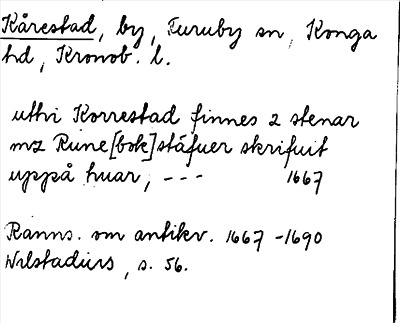 Kårestad, by, Furuby sn, Konga
hd, Kronob. l.
uthi Korrestad finnes 2 stenar
mz Rune[bok]stáfuer skrifuit
uppå huar, ---  1667
Ranns. om antikv. 1667-1690
Wilstadius, s. 56.